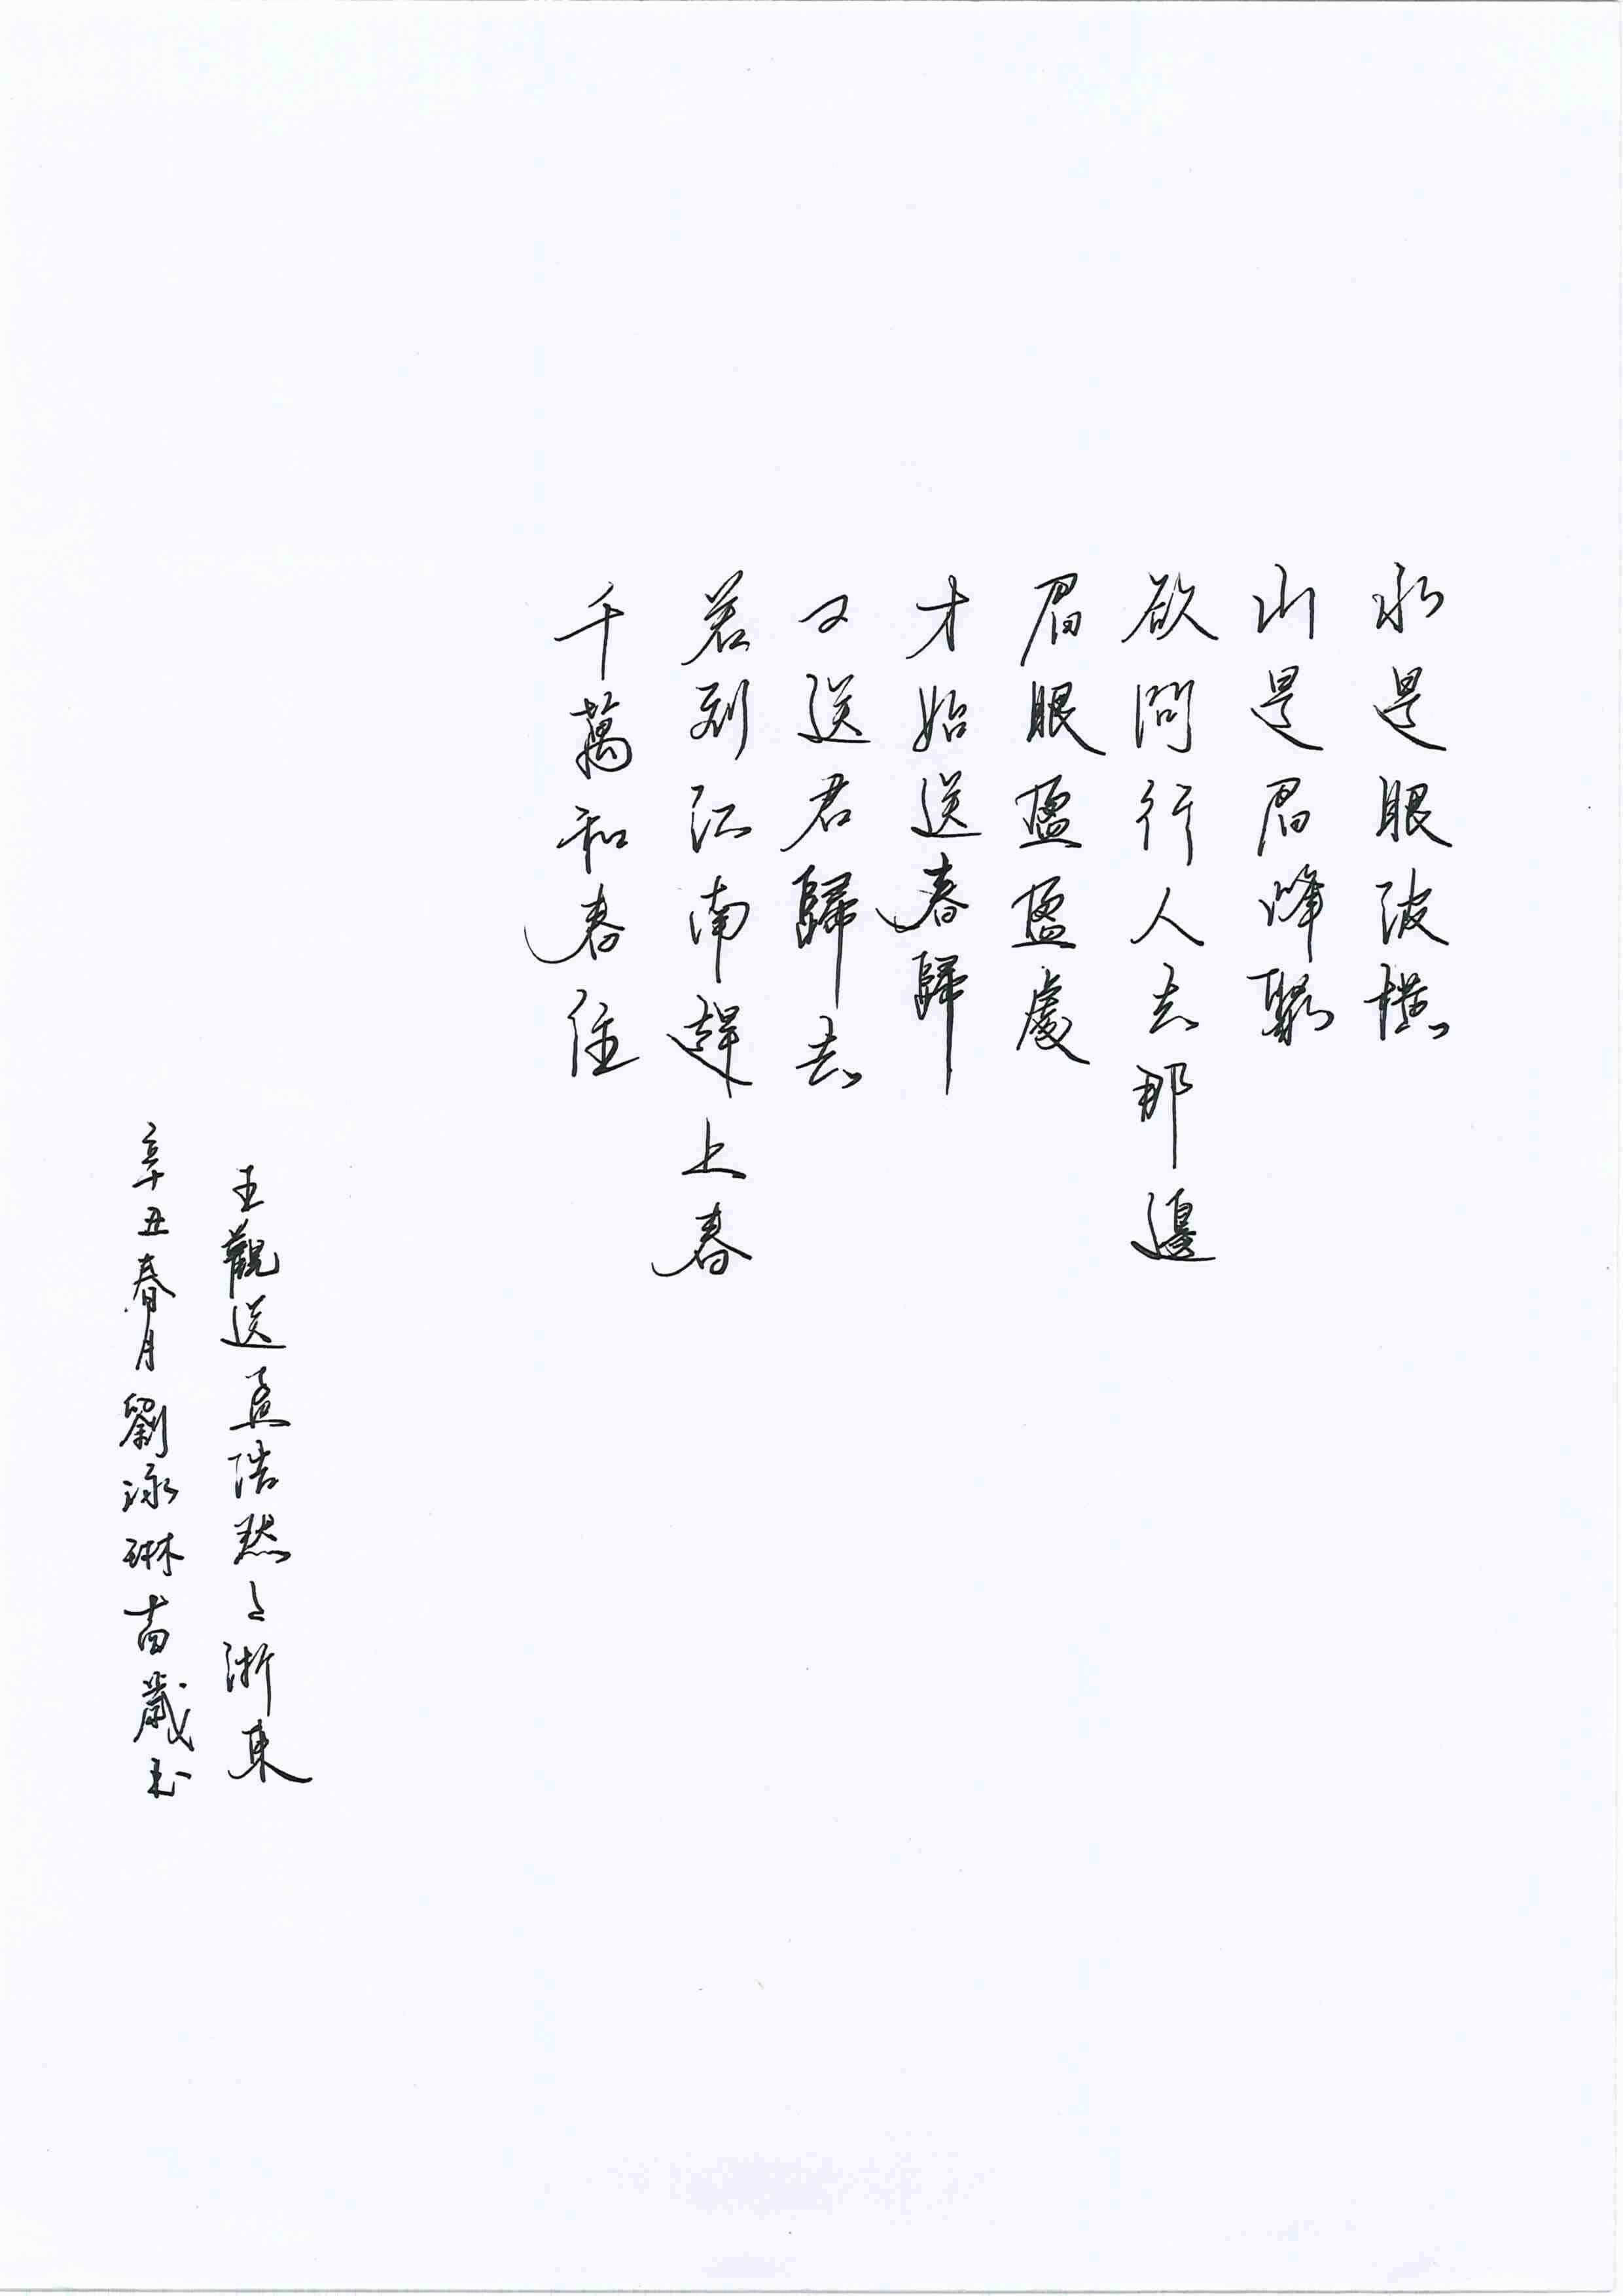 水是眼波橫
山是眉峰聚
欲問行人去那邊
眉眼盈盈處
才始送春歸
又送君歸去
若到江南趕上春
千萬和春住
王觀送孟浩然之浙東
辛丑春月劉泳琳歲書